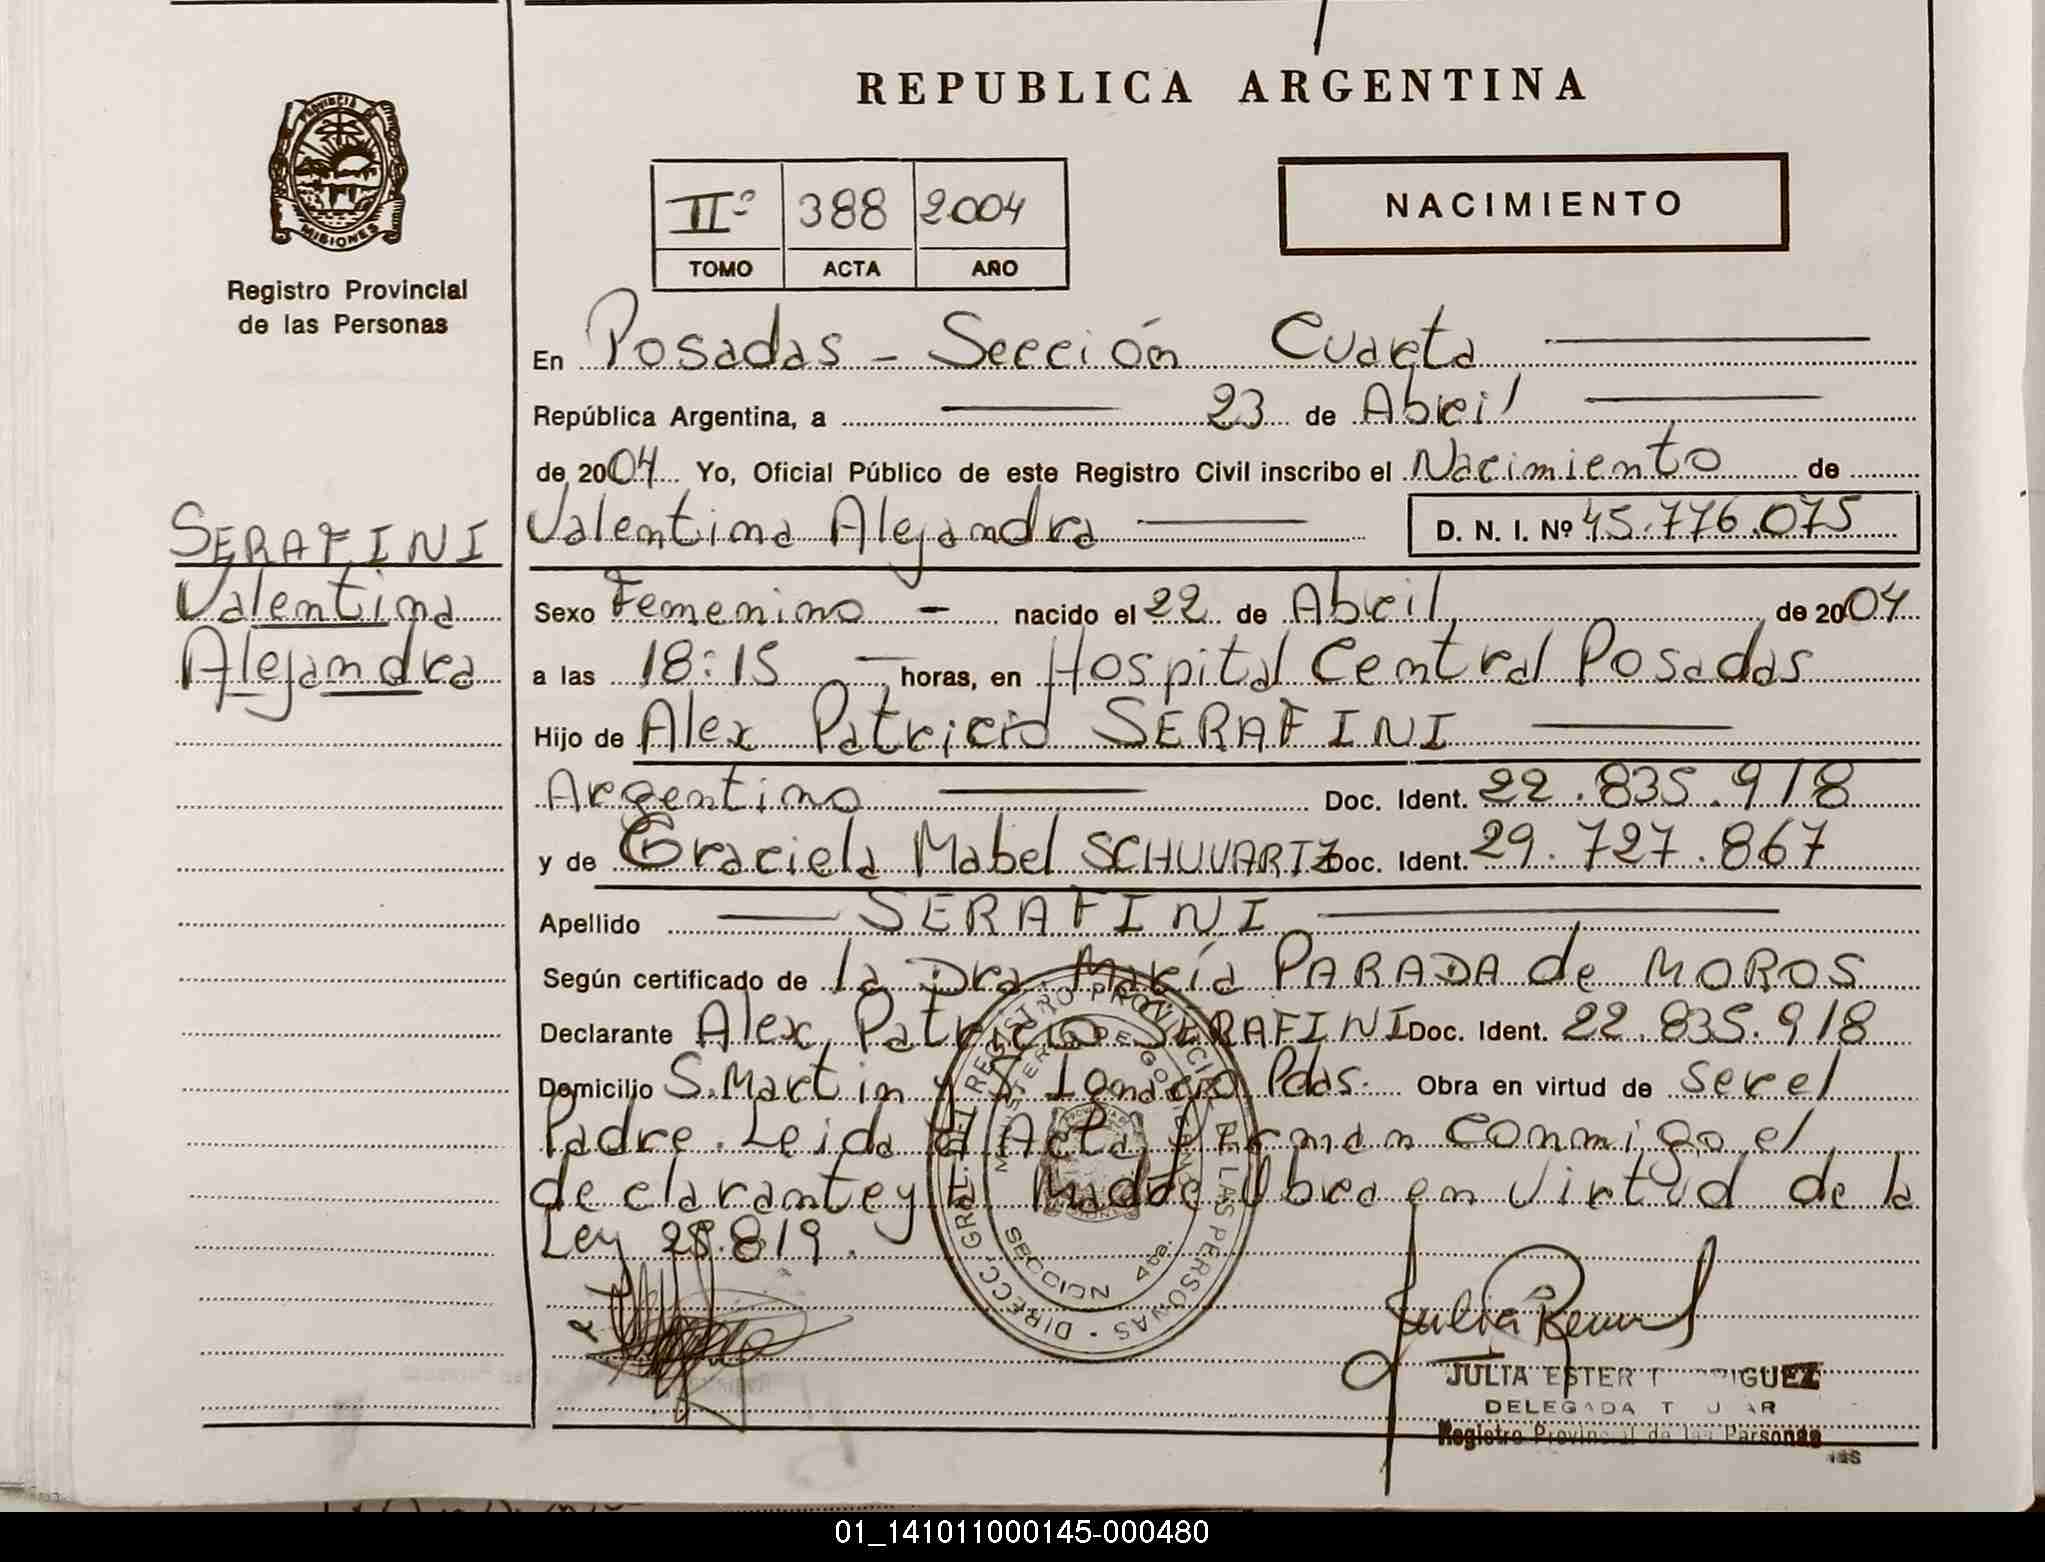 REPUBLICA ARGENTINA
PROVINCIA DE
MISIONES
Registro Provincial
de las Personas
IIº 388 2004
TOMO ACTA AÑO
NACIMIENTO
En Posadas - Sección Cuarta
República Argentina, a 23 de Abril
de 2004 Yo, Oficial Público de este Registro Civil inscribo el Nacimiento de
Valentina Alejandra D. N. I. Nº 45.776.075
SERAFINI
Valentina
Alejandra
Sexo Femenino - nacido el 22 de Abril de 2004
a las 18:15 horas, en Hospital Central Posadas
Hijo de Alex Patricio SERAFINI
Argentino Doc. Ident. 22.835.918
y de Graciela Mabel SCHUVARTZ Doc. Ident. 29.727.867
Apellido SERAFINI
Según certificado de la Dra María PARADA de MOROS
Declarante Alex Patricio SERAFINI Doc. Ident. 22.835.918
Domicilio S. Martin y S. Ignacio Pdas. Obra en virtud de ser el
Padre. Leida el Acta firman conmigo el
declarante y la Madre Obra en virtud de la
Ley 25.819.
DIRECC. GRAL. DEL REGISTRO PROVINCIAL DE LAS PERSONAS
MINISTERIO DE GOBIERNO
SECCION 4ta.
JULIA ESTER
DELEGADA
Registro Provincial de las Personas
01_141011000145-000480